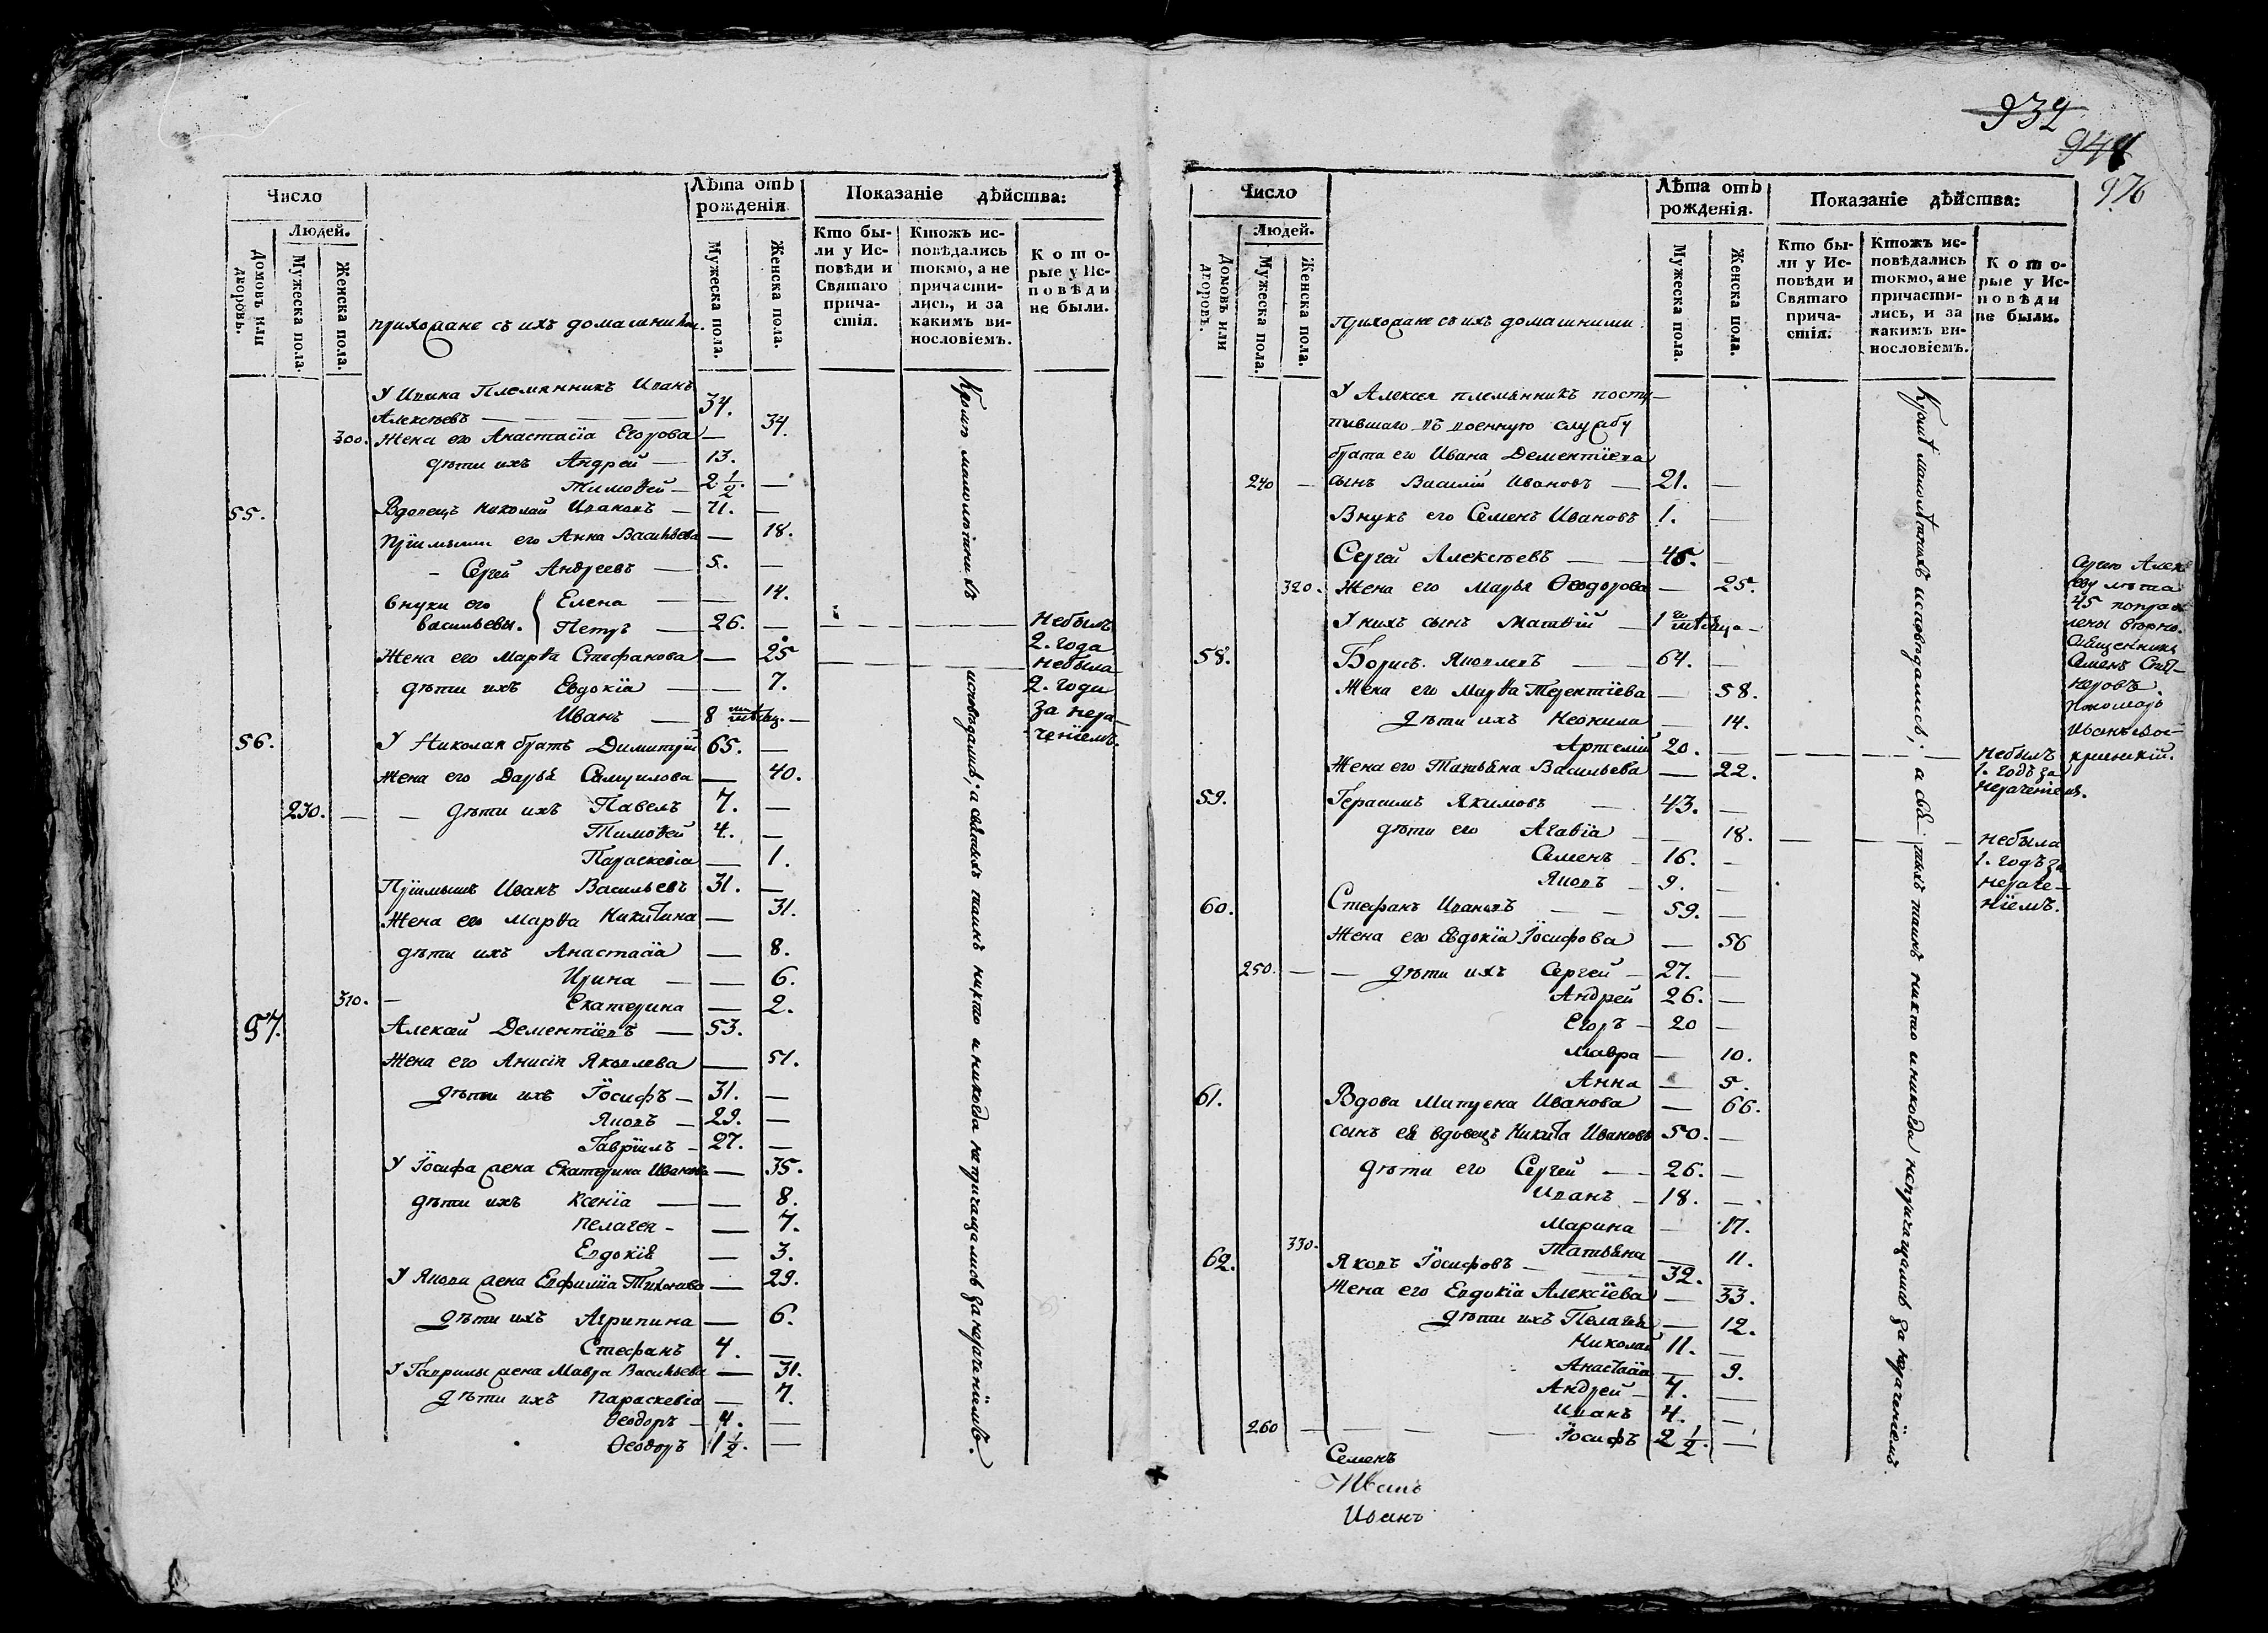 932
948
976
Число
Лѣта отъ рожденія.
Показаніе дѣйства:
Людей.
Домовъ или дворовъ.
Мужеска пола.
Женска пола.
прихожане съ ихъ домашними.
Мужеска пола.
Женска пола.
Кто были у Исповѣди и Святаго причастія.
Ктожъ исповѣдались токмо, а не причастились, и за какимъ винословіемъ.
Которые у Исповѣди не были.
У Ивана Племянникъ Иванъ
Алексѣевъ — 34.
300. Жена его Анастасіа Егорова — 34.
дѣти ихъ Андрей — 13.
Тимоѳей — 2 1/2. —
55. Вдовецъ Николай Ивановъ — 71. —
Пріимыши его Анна Васильева — 18.
- Сергей Андреевъ — 5. —
внуки его Елена — 14.
васильевы. Петръ — 26. — Небылъ 2. года
Жена его Марѳа Стефанова — 25 — небыла 2. годы за нераченіемъ.
дѣти ихъ Евдокіа — 7.
Иванъ — 8 мѣсяц. —
56. У Николая братъ Димитрій 65. —
Жена его Дарья Самуилова — 40.
230. — дѣти ихъ Павелъ 7. —
Тимоѳей 4. —
Параскевіа — 1.
Пріимышъ Иванъ Васильевъ 31. —
Жена его Марѳа Никитина — 31.
дѣти ихъ Анастасіа — 8.
Ирина — 6.
310. — Екатерина — 2.
57. Алексѣй Дементіевъ — 53.
Жена его Анисіа Яковлева — 51.
дѣти ихъ Іосифъ — 31. —
Яковъ — 29. —
Гавріилъ — 27. —
У Іосифа жена Екатерина Иванова — 35.
дѣти ихъ Ксеніа — 8.
Пелагея — 7.
Евдокіа — 3.
У Якова жена Евфиміа Тихонова — 29.
дѣти ихъ Агрипина — 6.
Стефанъ 4. —
У Гаврилы жена Мавра Васильева — 31.
дѣти ихъ Параскевіа — 7.
Ѳеодоръ — 4. —
Ѳеодоръ 1 1/2. —
Кромѣ малолѣтнихъ исповѣдались; а святыхъ таинъ никто и никогда непричащались за нераченіемъ.
Число
Лѣта отъ рожденія.
Показаніе дѣйства:
Людей.
Домовъ или дворовъ.
Мужеска пола.
Женска пола.
Прихожане съ ихъ домашними.
Мужеска пола.
Женска пола.
Кто были у Исповѣди и Святаго причастія.
Ктожъ исповѣдались токмо, а не причастились, и за какимъ винословіемъ.
Которые у Исповѣди не были.
У Алексѣя племянникъ посту-
пившаго въ военную службу
брата его Ивана Дементіева
240 — сынъ Василій Ивановъ — 21. —
Внукъ его Семенъ Ивановъ 1. —
Сергей Алексѣевъ — 45. —
320. Жена его Марья Ѳеодорова — 25.
У нихъ сынъ Матѳій — 1 го мѣсяца —
58. Борисъ Яковлевъ — 64. —
Жена его Марѳа Терентіева — 58.
дѣти ихъ Неонила — 14.
Артемій 20. — Небылъ 1. годъ за нераченіемъ.
Жена его Татьяна Васильева — 22.
59. Герасимъ Якимовъ — 43. —
дѣти его Агаѳіа — 18. — небыла 1. годъ за нераченіемъ.
Семенъ — 16. —
Яковъ — 9. —
60. Стефанъ Ивановъ — 59. —
Жена его Евдокіа Іосифова — 56
250. — дѣти ихъ Сергей — 27. —
Андрей 26. —
Егоръ — 20 —
Мавра — 10.
Анна — 5.
61. Вдова Матрена Иванова — 66.
сынъ ея вдовецъ Никита Ивановъ 50. —
дѣти его Сергей — 26. —
Иванъ — 18. —
Марина — 17.
330. Татьяна — 11.
62. Яковъ Іосифовъ — 32. —
Жена его Евдокіа Алексіева — 33.
дѣти ихъ Пелагея — 12.
Николай 11. —
Анастасіа — 9.
Андрей — 7. —
Иванъ 4. —
260 — Іосифъ 2 1/2. —
Кромѣ малолѣтнихъ исповѣдались; а святыхъ таинъ никто и никогда непричащались за нераченіемъ.
лѣта
45
Священникъ
Семенъ
Семенъ
Иванъ
Иванъ